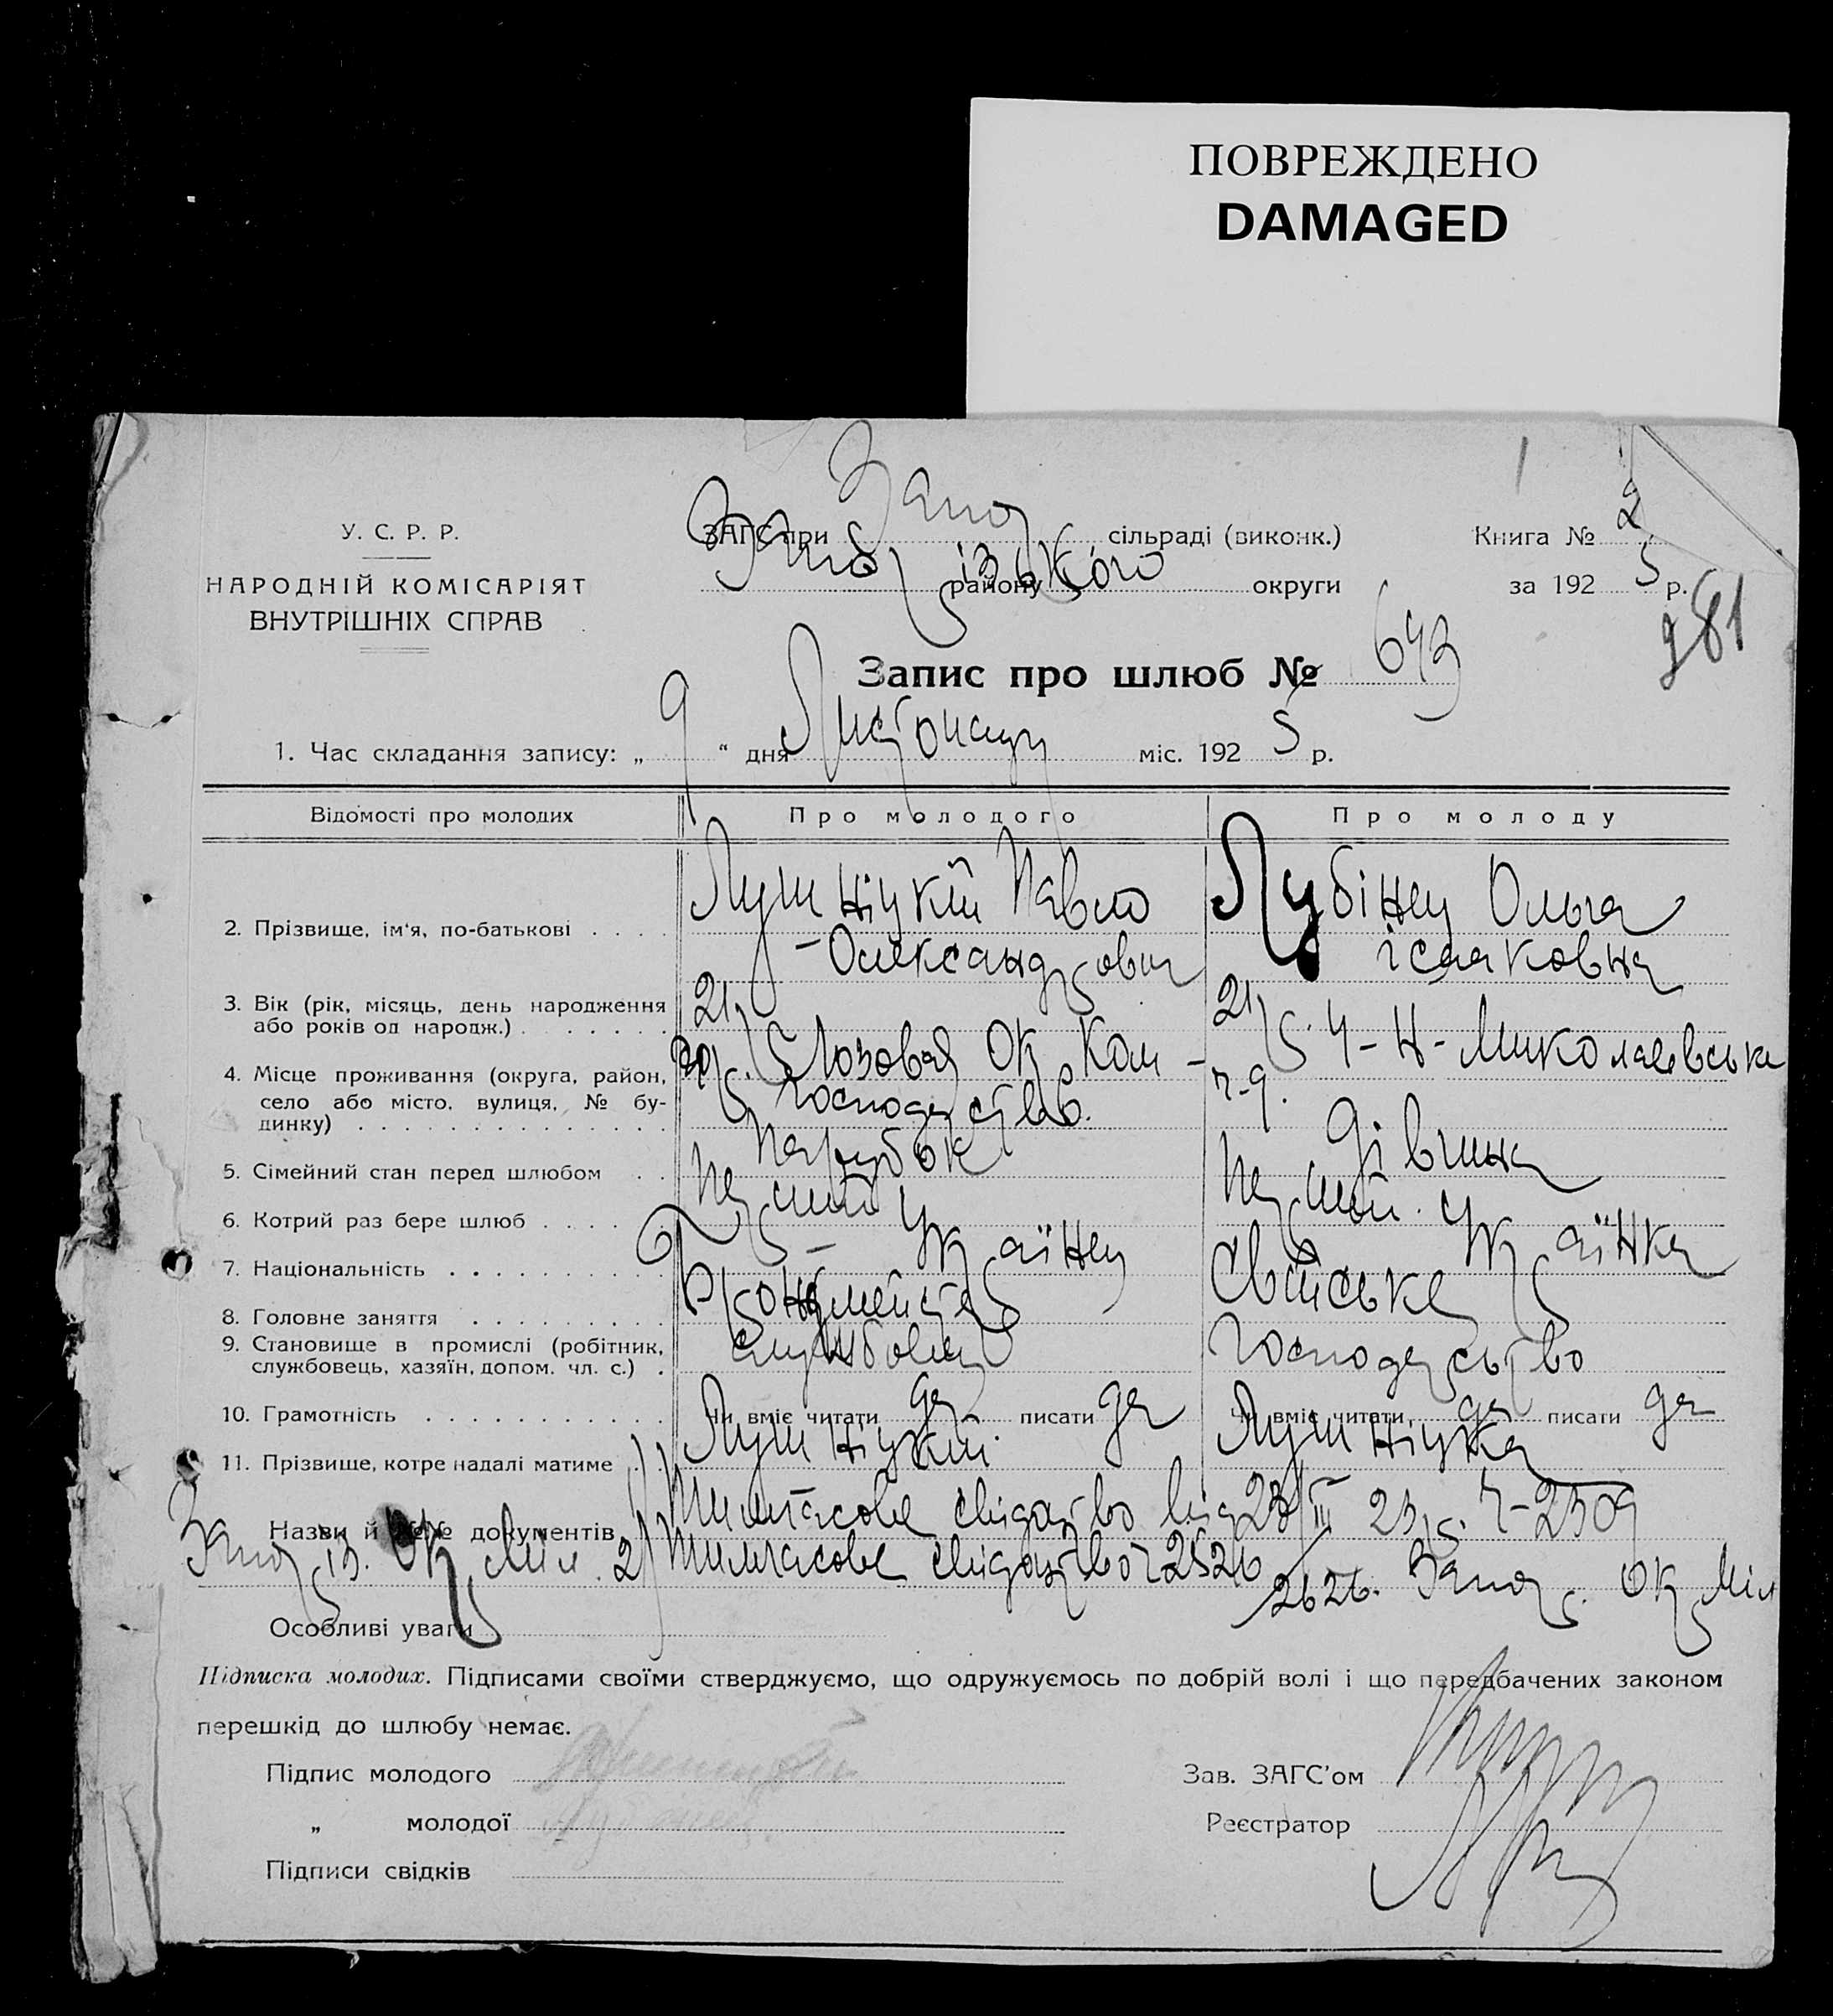 ПОВРЕЖДЕНО
DAMAGED
У. С. Р. Р.
НАРОДНІЙ КОМІСАРІЯТ
ВНУТРІШНІХ СПРАВ
ЗАГС при Запор сільраді (виконк.)
Запорізького району округи
Книга № 2
за 1925 р.
281
Запис про шлюб № 643
1. Час складання запису: „ 9 “ дня Листопаду міс. 1925 р.
Відомості про молодих
Про молодого
Про молоду
2. Прізвище, ім'я, по-батькові
Лушніцкій Павло
Олександрович
Лубінец Ольга
ісааковна
3. Вік (рік, місяць, день народження
або років од народж.)
21 р.
21 р.
4. Місце проживання (округа, район,
село або місто, вулиця, № бу-
динку)
Лозовая Ок Ком-
господарство.
Н-Миколаевська
ч-9.
5. Сімейний стан перед шлюбом
Парубок
Дівчина
6. Котрий раз бере шлюб
Перший
Перший.
7. Національність
Українец
Українка
8. Головне заняття
Брандмейстер
Свійське
9. Становище в промислі (робітник,
службовець, хазяїн, допом. чл. с.)
службовец
господарство
10. Грамотність
Чи вміє читати да писати да
Чи вміє читати да писати да
11. Прізвище, котре надалі матиме
Лушніцкій.
Лушніцка
Назви й №№ документів
1) Тимчасове свідоцтво від 23/III 23 р. ч-2309
Запоріз. Окр Міл. 2) Тимчасове свідоцтво ч 2526/2626. Запор. Окр Міл
Особливі уваги
Підписка молодих. Підписами своїми стверджуємо, що одружуємось по добрій волі і що передбачених законом
перешкід до шлюбу немає.
Підпис молодого
„ молодої Лубінец
Підписи свідків
Зав. ЗАГС'ом
Реєстратор